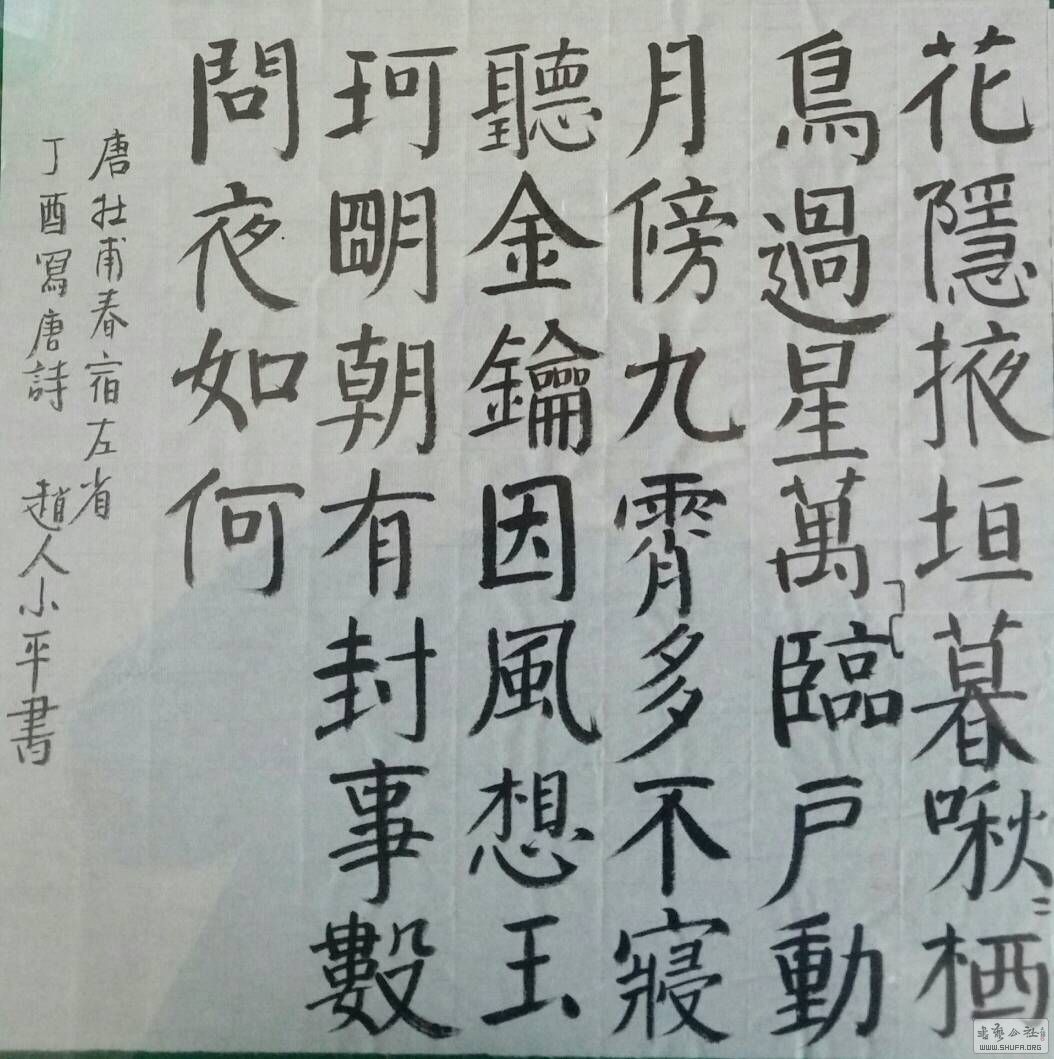 花隱掖垣暮啾〻栖
鳥過星萬臨户動
月傍九霄多不寢
聽金鑰因風想玉
珂朙朝有封事數
問夜如何
唐杜甫春宿左省
丁酉寫唐詩 趙人小平書
书艺公社
WWW.SHUFA.ORG